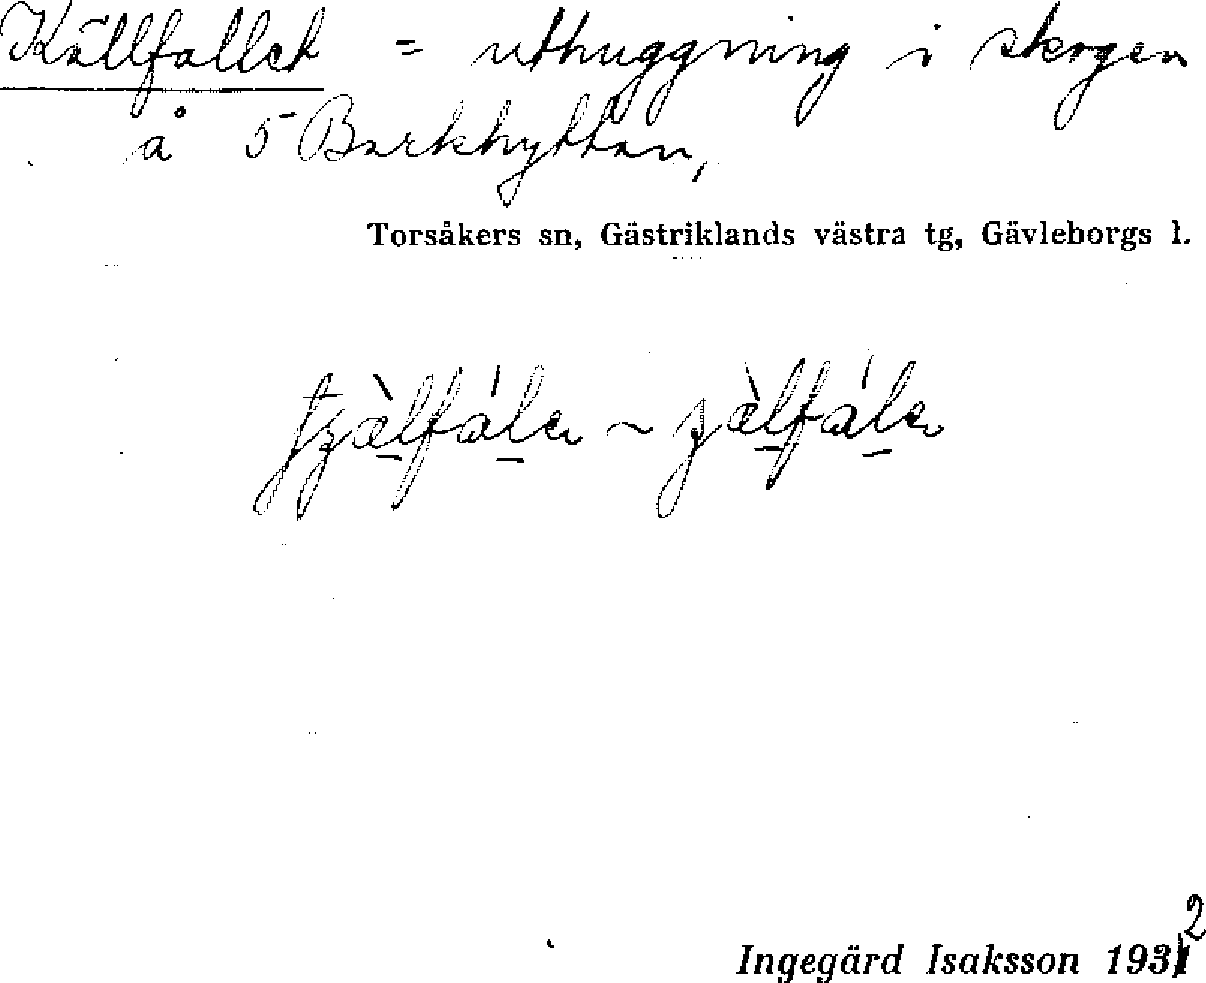 Källfallet = uthuggning i skogen
å 5 Barkhyttan,
Torsåkers sn, Gästriklands västra tg, Gävleborgs l.
Ingegärd Isaksson 1932